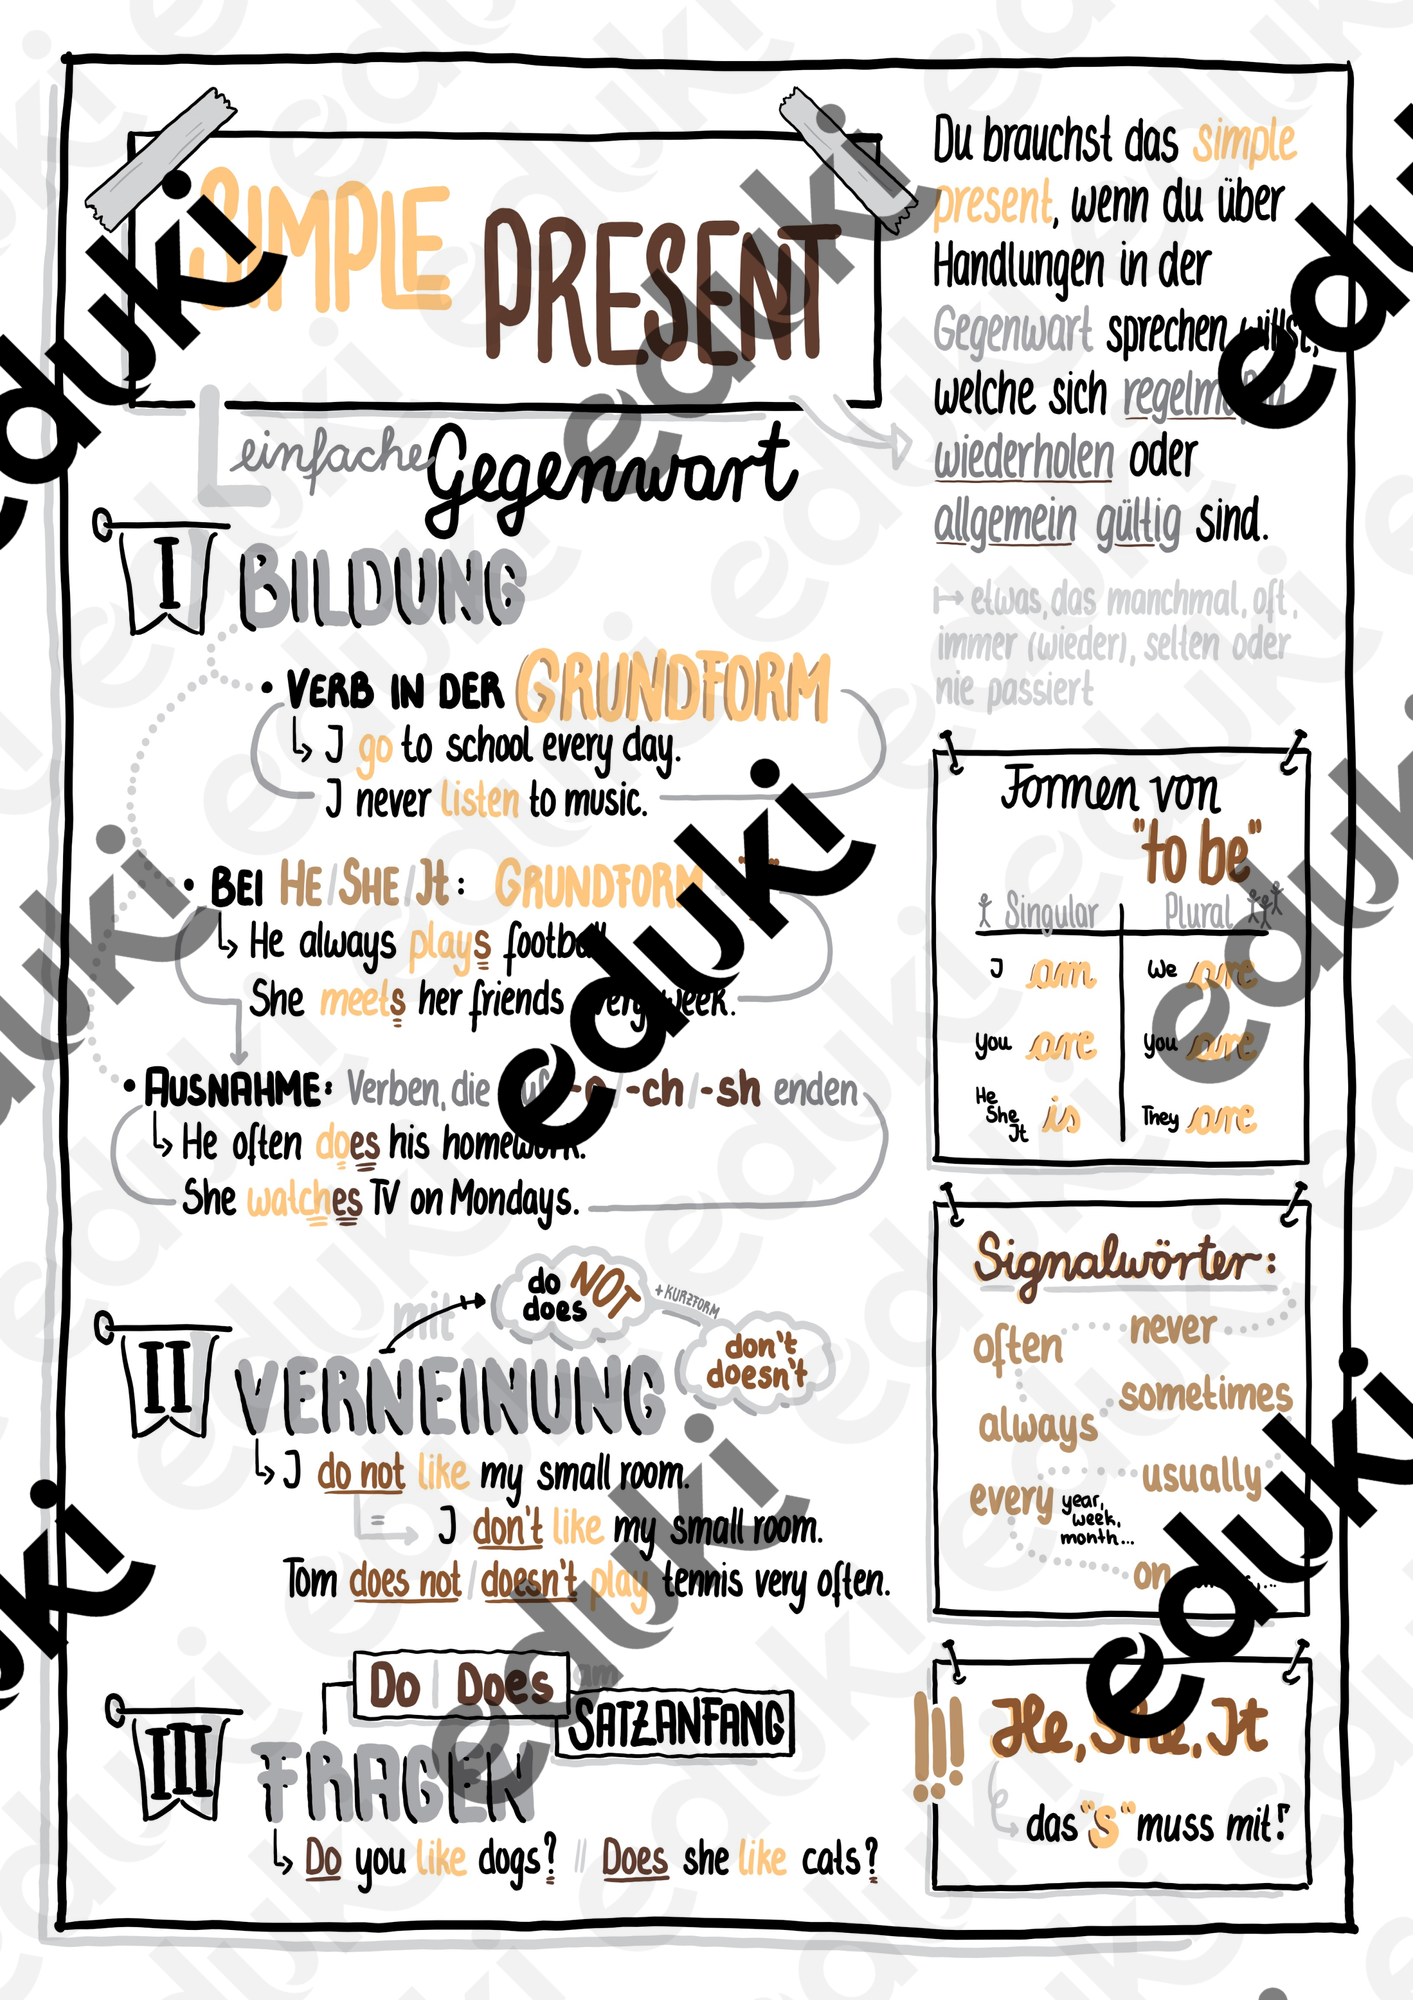 SIMPLE PRESENT
einfache Gegenwart
Du brauchst das simple
present, wenn du über
Handlungen in der
Gegenwart sprechen willst,
welche sich regelmäßig
wiederholen oder
allgemein gültig sind.
↦ etwas, das manchmal, oft,
immer (wieder), selten oder
nie passiert
I BILDUNG
• VERB IN DER GRUNDFORM
↳ I go to school every day.
I never listen to music.
• BEI HE/SHE/It: GRUNDFORM
↳ He always plays football
She meets her friends every week.
• AUSNAHME: Verben, die auf -o / -ch / -sh enden
↳ He often does his homework.
She watches TV on Mondays.
II VERNEINUNG
mit
do
does
NOT
+ KURZFORM
don't
doesn't
↳ I do not like my small room.
= I don't like my small room.
Tom does not / doesn't play tennis very often.
III FRAGEN
Do | Does am
SATZANFANG
↳ Do you like dogs? || Does she like cats?
Formen von
"to be"
Singular Plural
I am We are
you are you are
He She It is They are
Signalwörter:
often never
always sometimes
every year, week, month... usually
on
!!! He, She, It
das "S" muss mit!
eduki
eduki
eduki
eduki
eduki
eduki
eduki
eduki
eduki